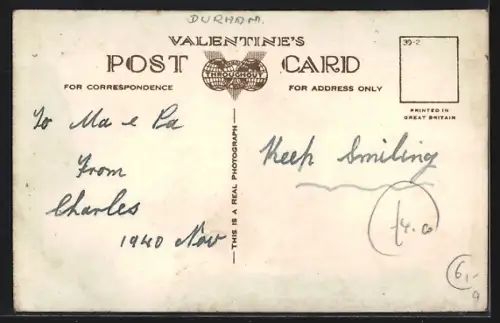 DURHAM.
VALENTINE'S
POST CARD
THROUGHOUT
FOR CORRESPONDENCE
FOR ADDRESS ONLY
39-2
PRINTED IN
GREAT BRITAIN
THIS IS A REAL PHOTOGRAPH
To Ma & Pa
From
Charles
1940 Nov
Keep Smiling